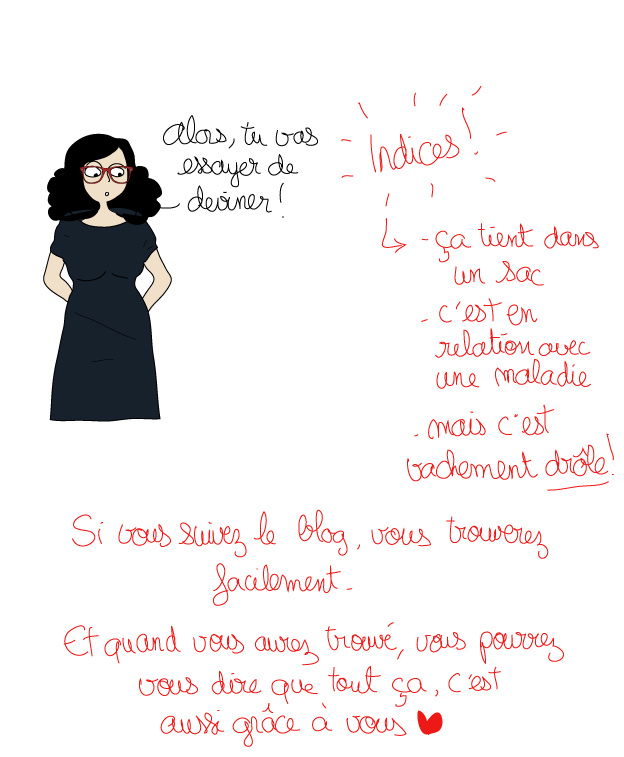 Alors, tu vas
essayer de
deviner !
Indices !
- ça tient dans
un sac
- c'est en
relation avec
une maladie
- mais c'est
vachement drôle !
Si vous suivez le blog, vous trouverez
facilement.
Et quand vous aurez trouvé, vous pourrez
vous dire que tout ça, c'est
aussi grâce à vous ♥